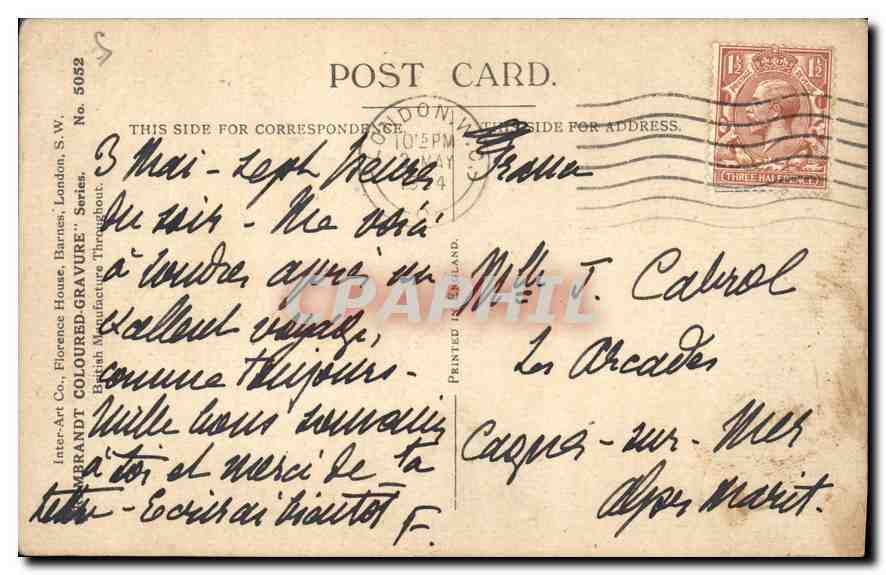 POST CARD.
THIS SIDE FOR CORRESPONDENCE.
THE SIDE FOR ADDRESS.
LONDON. W.C.
10 15 PM
MAY
1½ 1½
THREE HALF
Inter-Art Co., Florence House, Barnes, London, S. W.
MBRANDT COLOURED-GRAVURE" Series. No. 5052
British Manufacture Throughout.
PRINTED IN ENGLAND.
5
3 Mai - sept heures
du soir - Me voici
à Londres après un
excellent voyage,
comme toujours -
Mille bons souvenirs
à toi et merci de ta
lettre - Ecrirai bientôt
F.
France
Mlle J. Cabrol
Les Arcades
Cagnes-sur-Mer
Alpes Marit.
CPAPHIL